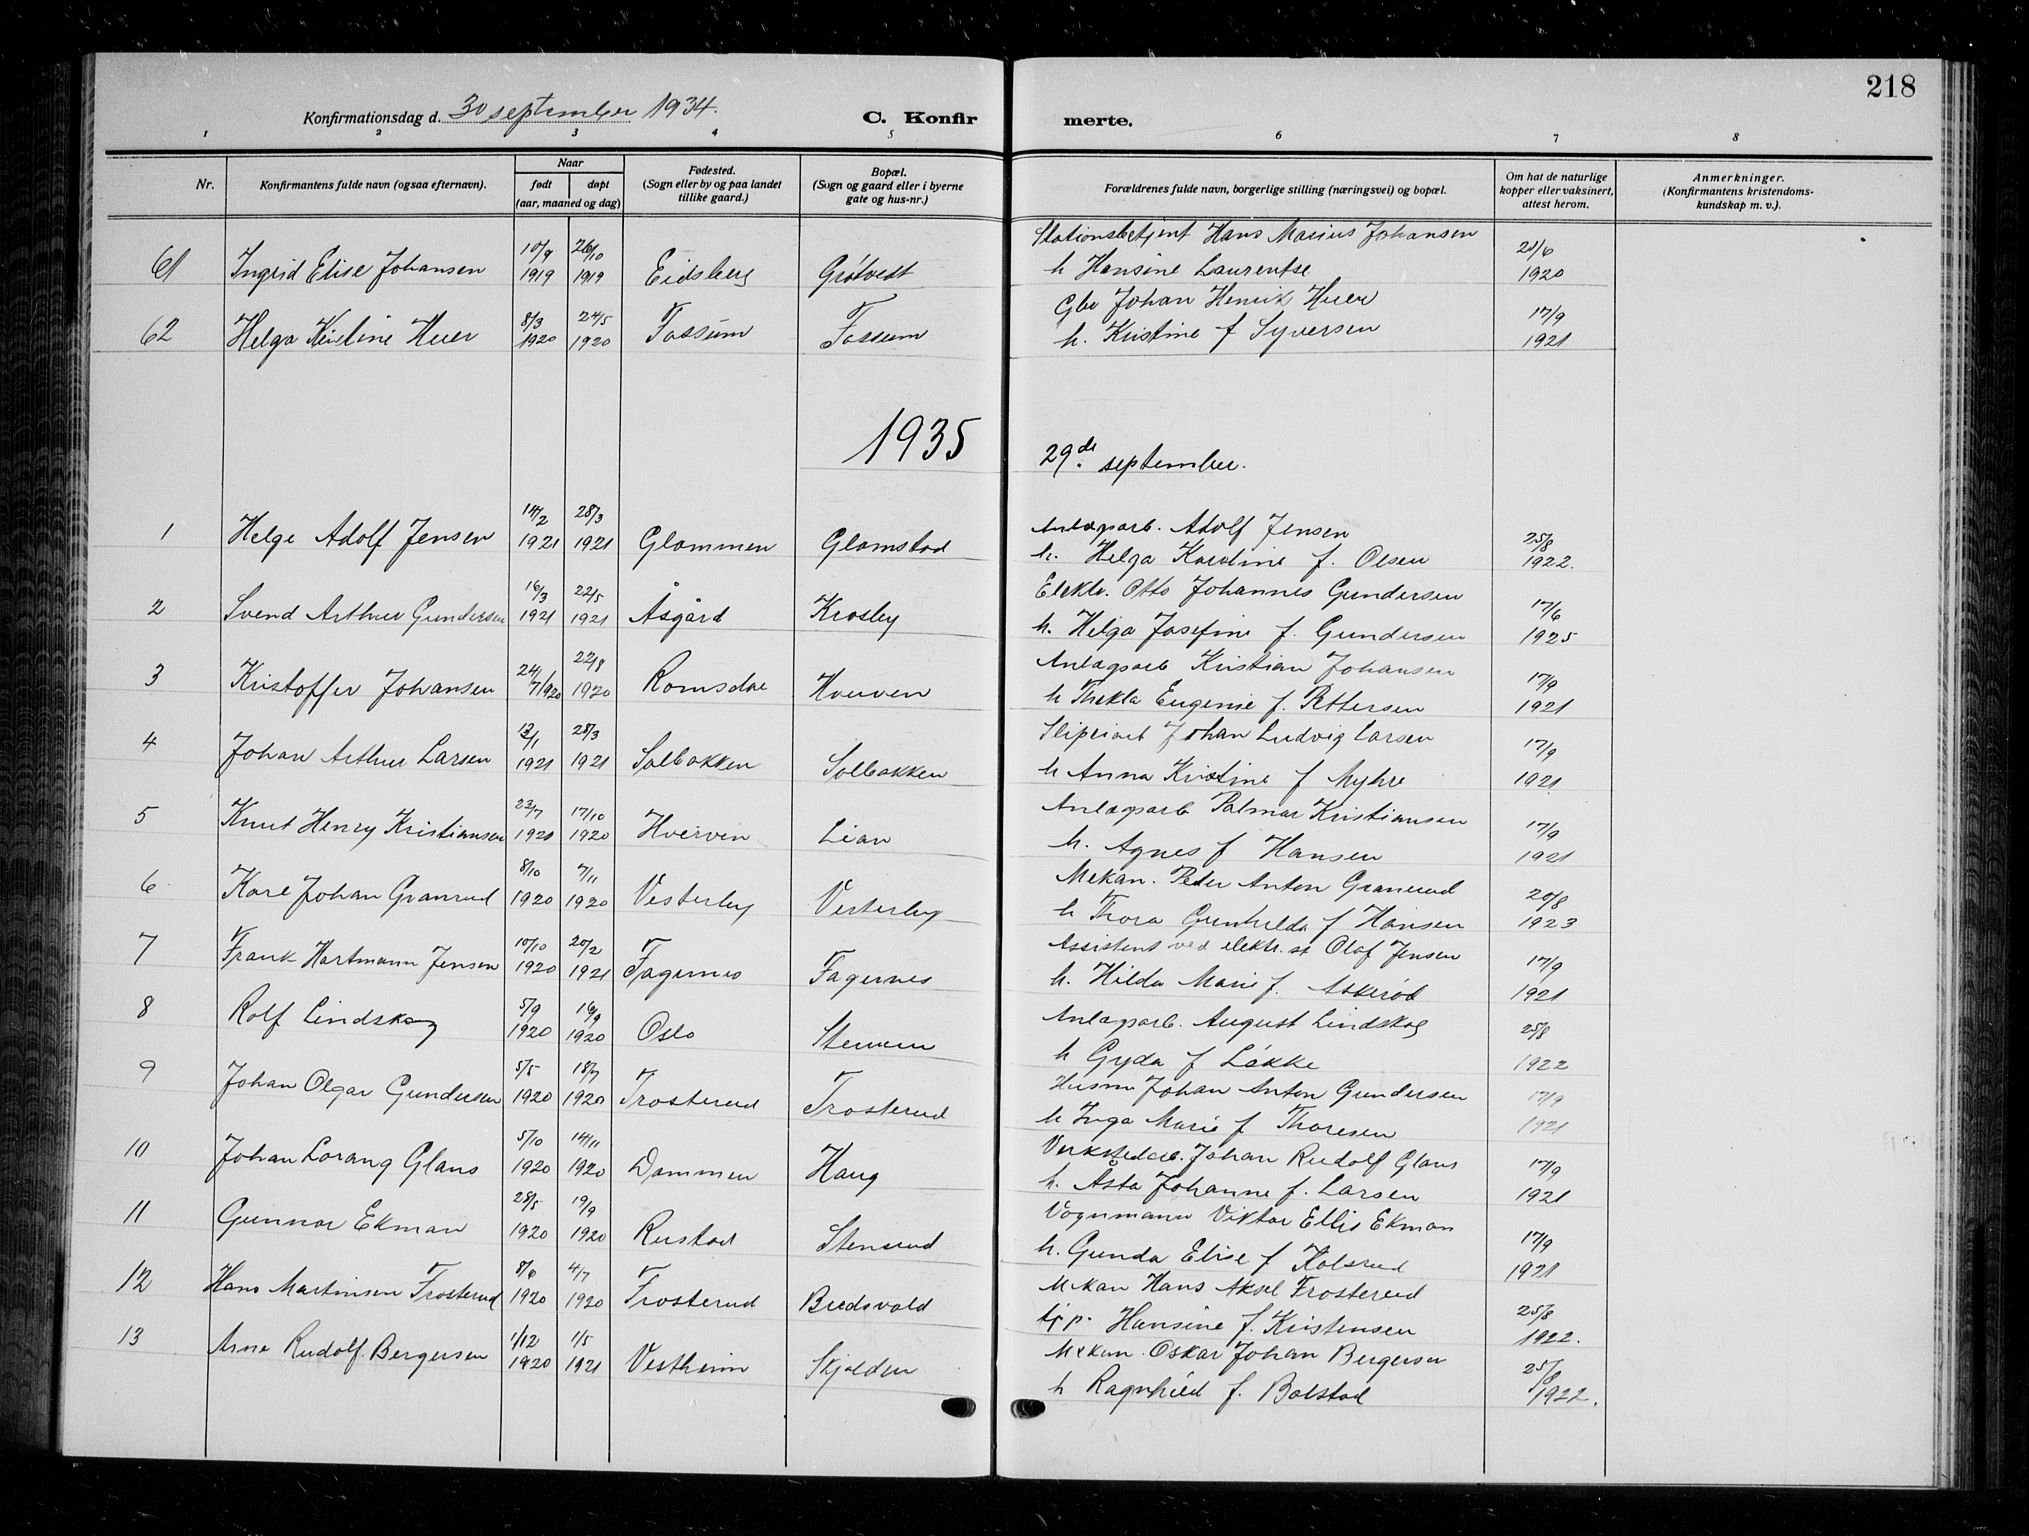 218
Konfirmationsdag d. 30 september 1934.
C. Konfir merte.
1 2 3 4 5 6 7 8
Nr.
Konfirmantens fulde navn (ogsaa efternavn).
Naar
født døpt
(aar, maaned og dag)
Fødested.
(Sogn eller by og paa landet
tillike gaard.)
Bopæl.
(Sogn og gaard eller i byerne
gate og hus-nr.)
Forældrenes fulde navn, borgerlige stilling (næringsvei) og bopæl.
Om hat de naturlige
kopper eller vaksinert,
attest herom.
Anmerkninger.
(Konfirmantens kristendoms-
kundskap m. v.).
61 Ingrid Elise Johansen 10/9 1919 26/10 1919 Eidsberg Grøtvedt Stationsbetjent Hans Marius Johansen
h Hansine Laurentse 21/6 1920
62 Helga Kristine Huer 8/3 1920 24/5 1920 Fossum Fossum Gbr Johan Henrik Huer
h. Kristine f Syversen 17/9 1921
1935 29de september.
1 Helge Adolf Jensen 14/2 1921 28/3 1921 Glommen Glomstad Anlægsarb. Adolf Jensen
h. Helga Karoline f. Olsen 25/8 1922.
2 Svend Arthur Gundersen 16/3 1921 22/5 1921 Åsgård Krosby Elektr. Otto Johannes Gundersen
h. Helga Josefine f. Gundersen 17/6 1925
3 Kristoffer Johansen 24/7 1920 22/8 1920 Romsdal Hverven Anlægsarb Kristian Johansen
h Thekla Eugenie f. Pettersen 17/9 1921
4 Johan Arthur Larsen 1921 28/3 1921 Solbakken Solbakken Sliperiarb Johan Ludvig Larsen
h Anna Kristine f Myhre 17/9 1921
5 Knut Henry Kristiansen 23/7 1920 17/10 1920 Hverven Lian Anlægsarb Palmar Kristiansen
h. Agnes f Hansen 17/9 1921
6 Kåre Johan Granerud 8/10 1920 7/11 1920 Vesterby Vesterby Mekan. Peder Anton Granerud
h Thora Gunhilda f Hansen 20/8 1923
7 Frank Hartmann Jensen 10/10 1920 20/2 1921 Fagernes Fagernes Assistent ved elektr. st Olaf Jensen
h. Hilda Marie f. Askerød 17/9 1921
8 Rolf Lindskog 5/9 1920 1920 Oslo Anlægsarb. August Lindskog
h Gyda f Løkke 25/8 1922
9 Johan Olgar Gundersen 5/5 1920 18/7 1920 Trosterud Trosterud Husm Johan Anton Gundersen
h Inga Marie f Thoresen 17/9 1921
10 Johan Lorang Glans 5/10 1920 14/11 1920 Dammen Haug Verkstedarb. Johan Rudolf Glans
h. Åsta Johanne f. Larsen 17/9 1921
11 Gunnar Ekman 28/5 1920 19/9 1920 Rustad Stensrud Vognmann Viktor Ellis Ekman
h. Gunda Elise f Kolsrud 17/9 1921
12 Hans Martinsen Trosterud 8/6 1920 4/7 1920 Trosterud Bredsvold Mekan Hans Aksel Trosterud
Hansine f. Kristensen 25/8 1922.
13 Arne Rudolf Bergersen 1/12 1920 1/5 1921 Vestheim Skjolden Mekan. Oskar Johan Bergersen
h Ragnhild f. Bolstad 25/8 1922.